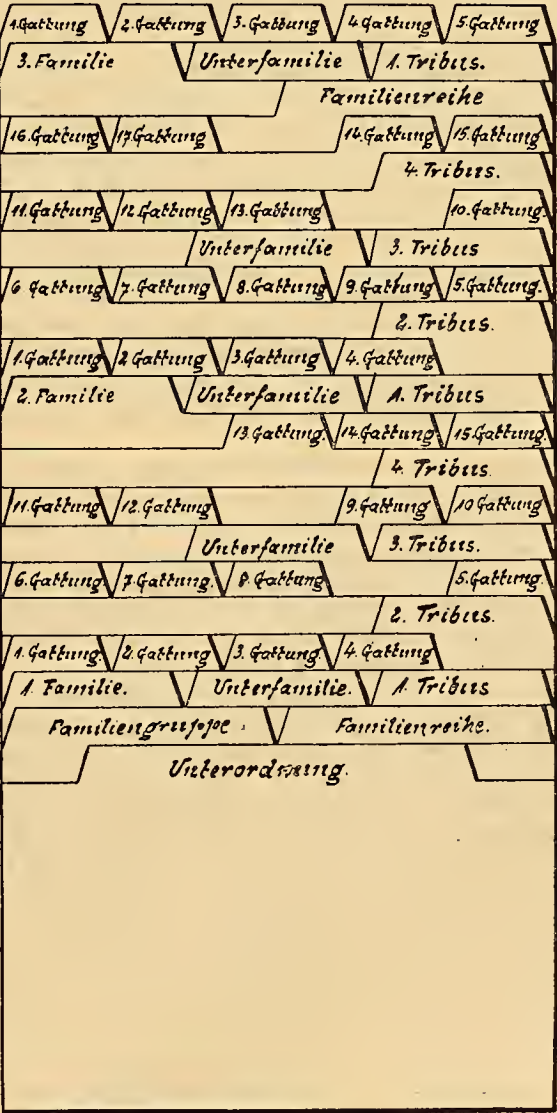 1.Gattung 2.Gattung 3.Gattung 4.Gattung 5.Gattung
3. Familie Unterfamilie 1. Tribus.
Familienreihe
16.Gattung 17.Gattung 14.Gattung 15.Gattung
4. Tribus.
11.Gattung 12.Gattung 13.Gattung 10.Gattung.
Unterfamilie 3. Tribus
6. Gattung 7.Gattung 8.Gattung 9.Gattung 5.Gattung.
2. Tribus.
1.Gattung 2 Gattung 3.Gattung 4. Gattung
2. Familie Unterfamilie 1. Tribus
13.Gattung. 14.Gattung 15.Gattung.
4. Tribus
11.Gattung 12.Gattung 9.Gattung 10 Gattung
Unterfamilie 3. Tribus.
6.Gattung. 7.Gattung. 8.Gattung 5.Gattung.
2. Tribus.
1. Gattung. 2.Gattung 3. Gattung. 4. Gattung
1. Familie. Unterfamilie. 1. Tribus
Familiengruppe. Familienreihe.
Unterordnung.